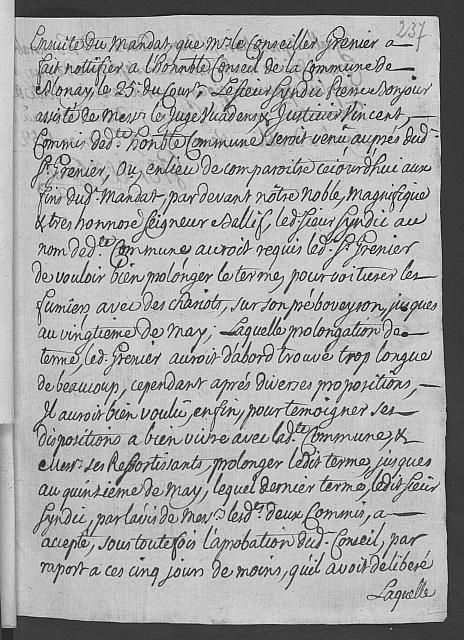 237
Ensuite du Mandat, que Mr. le Conseiller Grenier a
fait nottifier a l'honnble Conseil de la Commune de
Blonay, le 25e. du Cour.t, Le Sieur Syndic Pierre Bonjour
assisté de Mess.rs le Juge Vuadens, & Justicier Vincent,
Commis de d.te honble Commune, seroit venû auprés dud.
Sr. Grenier, Ou, en lieu de comparoitre cejourdhui aux
fins dud. Mandat, par devant nôtre Noble, Magnifique
& tres honnoré Seigneur Ballif, led. Sieur Syndic au
nom de d.te Commune auroit requis led. Sr. Grenier
de vouloir bien prolonger le terme, pour voiturer les
fumiers avec des chariots, sur son pré boveyron, jusques
au vingtieme de May; Laquelle prolongation de
terme, led. Grenier auroit d'abord trouvé trop longue
de beaucoup, cependant aprés diverses propositions,
Il auroit bien voulû, enfin, pour temoigner ses
dispositions a bien vivre avec lad.te Commune, &
Mess.rs ses Ressortissants, prolonger ledit terme, jusques
au quinzieme de May, lequel dernier terme, ledit Sieur
Syndic, par l'avis de Mess.rs lesd.ts deux Commis, a
accepté, sous toutefois l'aprobation dud. Conseil, par
raport a ces cinq jours de moins, qu'il avoit deliberé
Laquelle